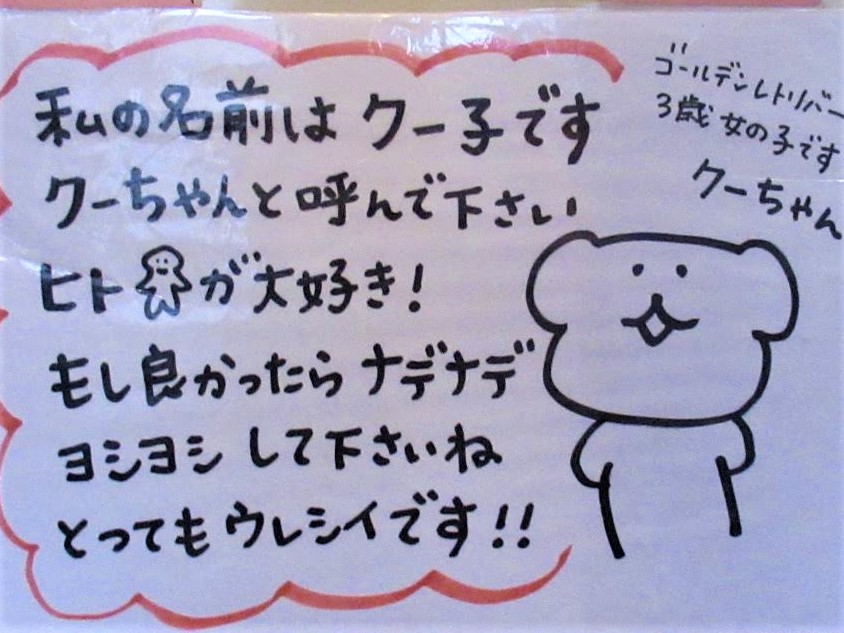 私の名前は クー子です
クーちゃんと呼んで下さい
ヒトが大好き!
もし良かったら ナデナデ
ヨシヨシ して下さいね
とっても ウレシイです!!
ゴールデンレトリバー
3歳 女の子です
クーちゃん